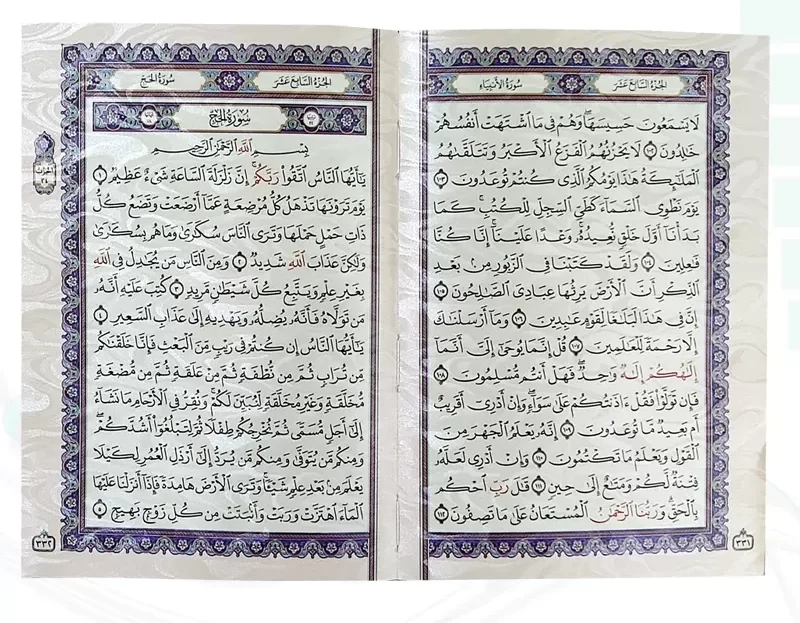 الجزء السابع عشر
سورة الأنبياء
لَا يَسْمَعُونَ حَسِيسَهَا وَهُمْ فِي مَا اشْتَهَتْ أَنفُسُهُمْ
خَالِدُونَ ١٠٢ لَا يَحْزُنُهُمُ الْفَزَعُ الْأَكْبَرُ وَتَتَلَقَّاهُمُ
الْمَلَائِكَةُ هَذَا يَوْمُكُمُ الَّذِي كُنتُمْ تُوعَدُونَ ١٠٣
يَوْمَ نَطْوِي السَّمَاءَ كَطَيِّ السِّجِلِّ لِلْكُتُبِ كَمَا
بَدَأْنَا أَوَّلَ خَلْقٍ نُّعِيدُهُ وَعْدًا عَلَيْنَا إِنَّا كُنَّا
فَاعِلِينَ ١٠٤ وَلَقَدْ كَتَبْنَا فِي الزَّبُورِ مِن بَعْدِ
الذِّكْرِ أَنَّ الْأَرْضَ يَرِثُهَا عِبَادِيَ الصَّالِحُونَ ١٠٥
إِنَّ فِي هَذَا لَبَلَاغًا لِّقَوْمٍ عَابِدِينَ ١٠٦ وَمَا أَرْسَلْنَاكَ
إِلَّا رَحْمَةً لِّلْعَالَمِينَ ١٠٧ قُلْ إِنَّمَا يُوحَى إِلَيَّ أَنَّمَا
إِلَهُكُمْ إِلَهٌ وَاحِدٌ فَهَلْ أَنتُم مُّسْلِمُونَ ١٠٨
فَإِن تَوَلَّوْا فَقُلْ آذَنتُكُمْ عَلَى سَوَاءٍ وَإِنْ أَدْرِي أَقَرِيبٌ
أَم بَعِيدٌ مَّا تُوعَدُونَ ١٠٩ إِنَّهُ يَعْلَمُ الْجَهْرَ مِنَ
الْقَوْلِ وَيَعْلَمُ مَا تَكْتُمُونَ ١١٠ وَإِنْ أَدْرِي لَعَلَّهُ
فِتْنَةٌ لَّكُمْ وَمَتَاعٌ إِلَى حِينٍ ١١١ قَالَ رَبِّ احْكُم
بِالْحَقِّ وَرَبُّنَا الرَّحْمَنُ الْمُسْتَعَانُ عَلَى مَا تَصِفُونَ ١١٢
٣٣١
الجزء السابع عشر
سورة الحج
سورة الحج
بِسْمِ اللَّهِ الرَّحْمَنِ الرَّحِيمِ
يَا أَيُّهَا النَّاسُ اتَّقُوا رَبَّكُمْ إِنَّ زَلْزَلَةَ السَّاعَةِ شَيْءٌ عَظِيمٌ ١
يَوْمَ تَرَوْنَهَا تَذْهَلُ كُلُّ مُرْضِعَةٍ عَمَّا أَرْضَعَتْ وَتَضَعُ كُلُّ
ذَاتِ حَمْلٍ حَمْلَهَا وَتَرَى النَّاسَ سُكَارَى وَمَا هُم بِسُكَارَى
وَلَكِنَّ عَذَابَ اللَّهِ شَدِيدٌ ٢ وَمِنَ النَّاسِ مَن يُجَادِلُ فِي اللَّهِ
بِغَيْرِ عِلْمٍ وَيَتَّبِعُ كُلَّ شَيْطَانٍ مَّرِيدٍ ٣ كُتِبَ عَلَيْهِ أَنَّهُ
مَن تَوَلَّاهُ فَأَنَّهُ يُضِلُّهُ وَيَهْدِيهِ إِلَى عَذَابِ السَّعِيرِ ٤
يَا أَيُّهَا النَّاسُ إِن كُنتُمْ فِي رَيْبٍ مِّنَ الْبَعْثِ فَإِنَّا خَلَقْنَاكُم
مِّن تُرَابٍ ثُمَّ مِن نُّطْفَةٍ ثُمَّ مِنْ عَلَقَةٍ ثُمَّ مِن مُّضْغَةٍ
مُّخَلَّقَةٍ وَغَيْرِ مُخَلَّقَةٍ لِّنُبَيِّنَ لَكُمْ وَنُقِرُّ فِي الْأَرْحَامِ مَا نَشَاءُ
إِلَى أَجَلٍ مُّسَمًّى ثُمَّ نُخْرِجُكُمْ طِفْلًا ثُمَّ لِتَبْلُغُوا أَشُدَّكُمْ
وَمِنكُم مَّن يُتَوَفَّى وَمِنكُم مَّن يُرَدُّ إِلَى أَرْذَلِ الْعُمُرِ لِكَيْلَا
يَعْلَمَ مِن بَعْدِ عِلْمٍ شَيْئًا وَتَرَى الْأَرْضَ هَامِدَةً فَإِذَا أَنزَلْنَا عَلَيْهَا
الْمَاءَ اهْتَزَّتْ وَرَبَتْ وَأَنبَتَتْ مِن كُلِّ زَوْجٍ بَهِيجٍ ٥
٣٣٢